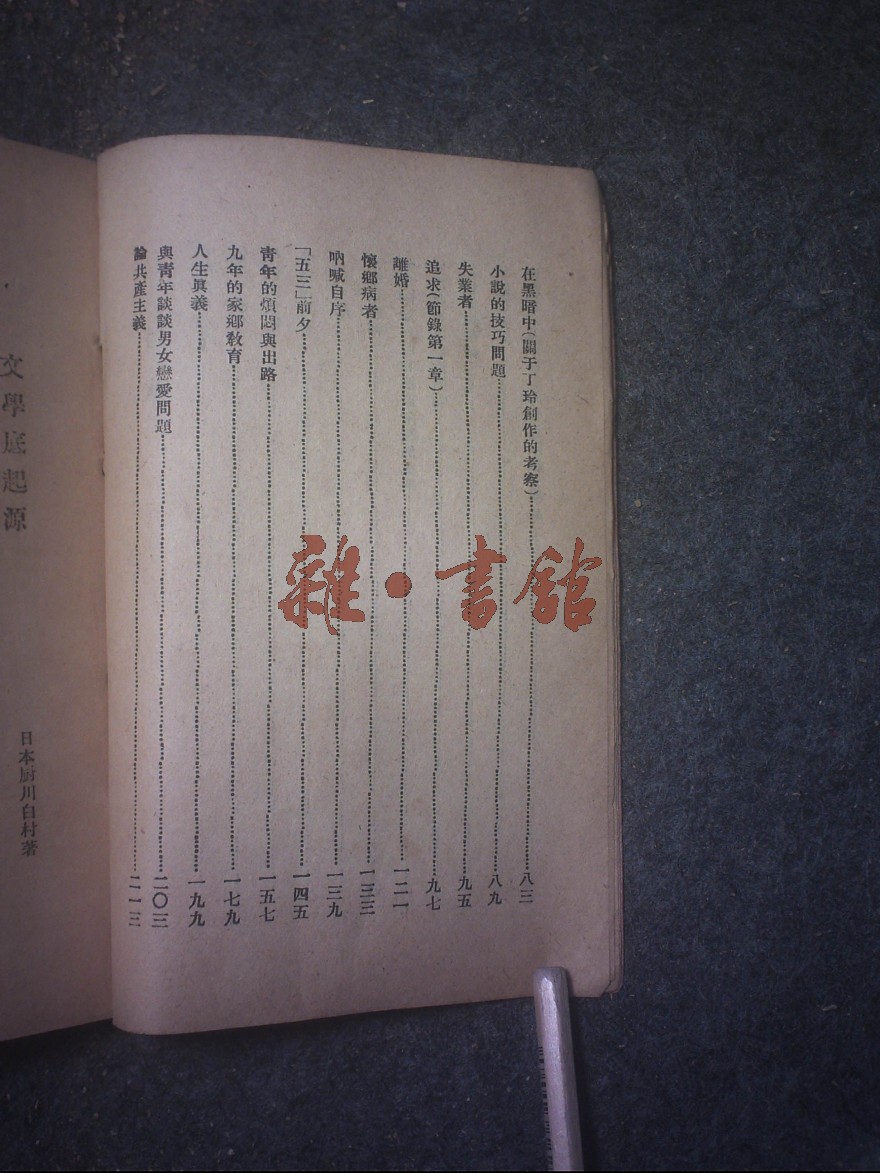 在黑暗中(關于丁玲創作的考察)……八三
小說的技巧問題……八九
失業者……九五
追求(節錄第一章)……九七
離婚……一二一
懷鄉病者……一三三
吶喊自序……一三九
「五三」前夕……一四五
靑年的煩悶與出路……一五七
九年的家鄉敎育……一七九
人生眞義……一九九
與靑年談談男女戀愛問題……二〇三
論共產主義……二一三
文學底起源
日本厨川白村著
雜·書館